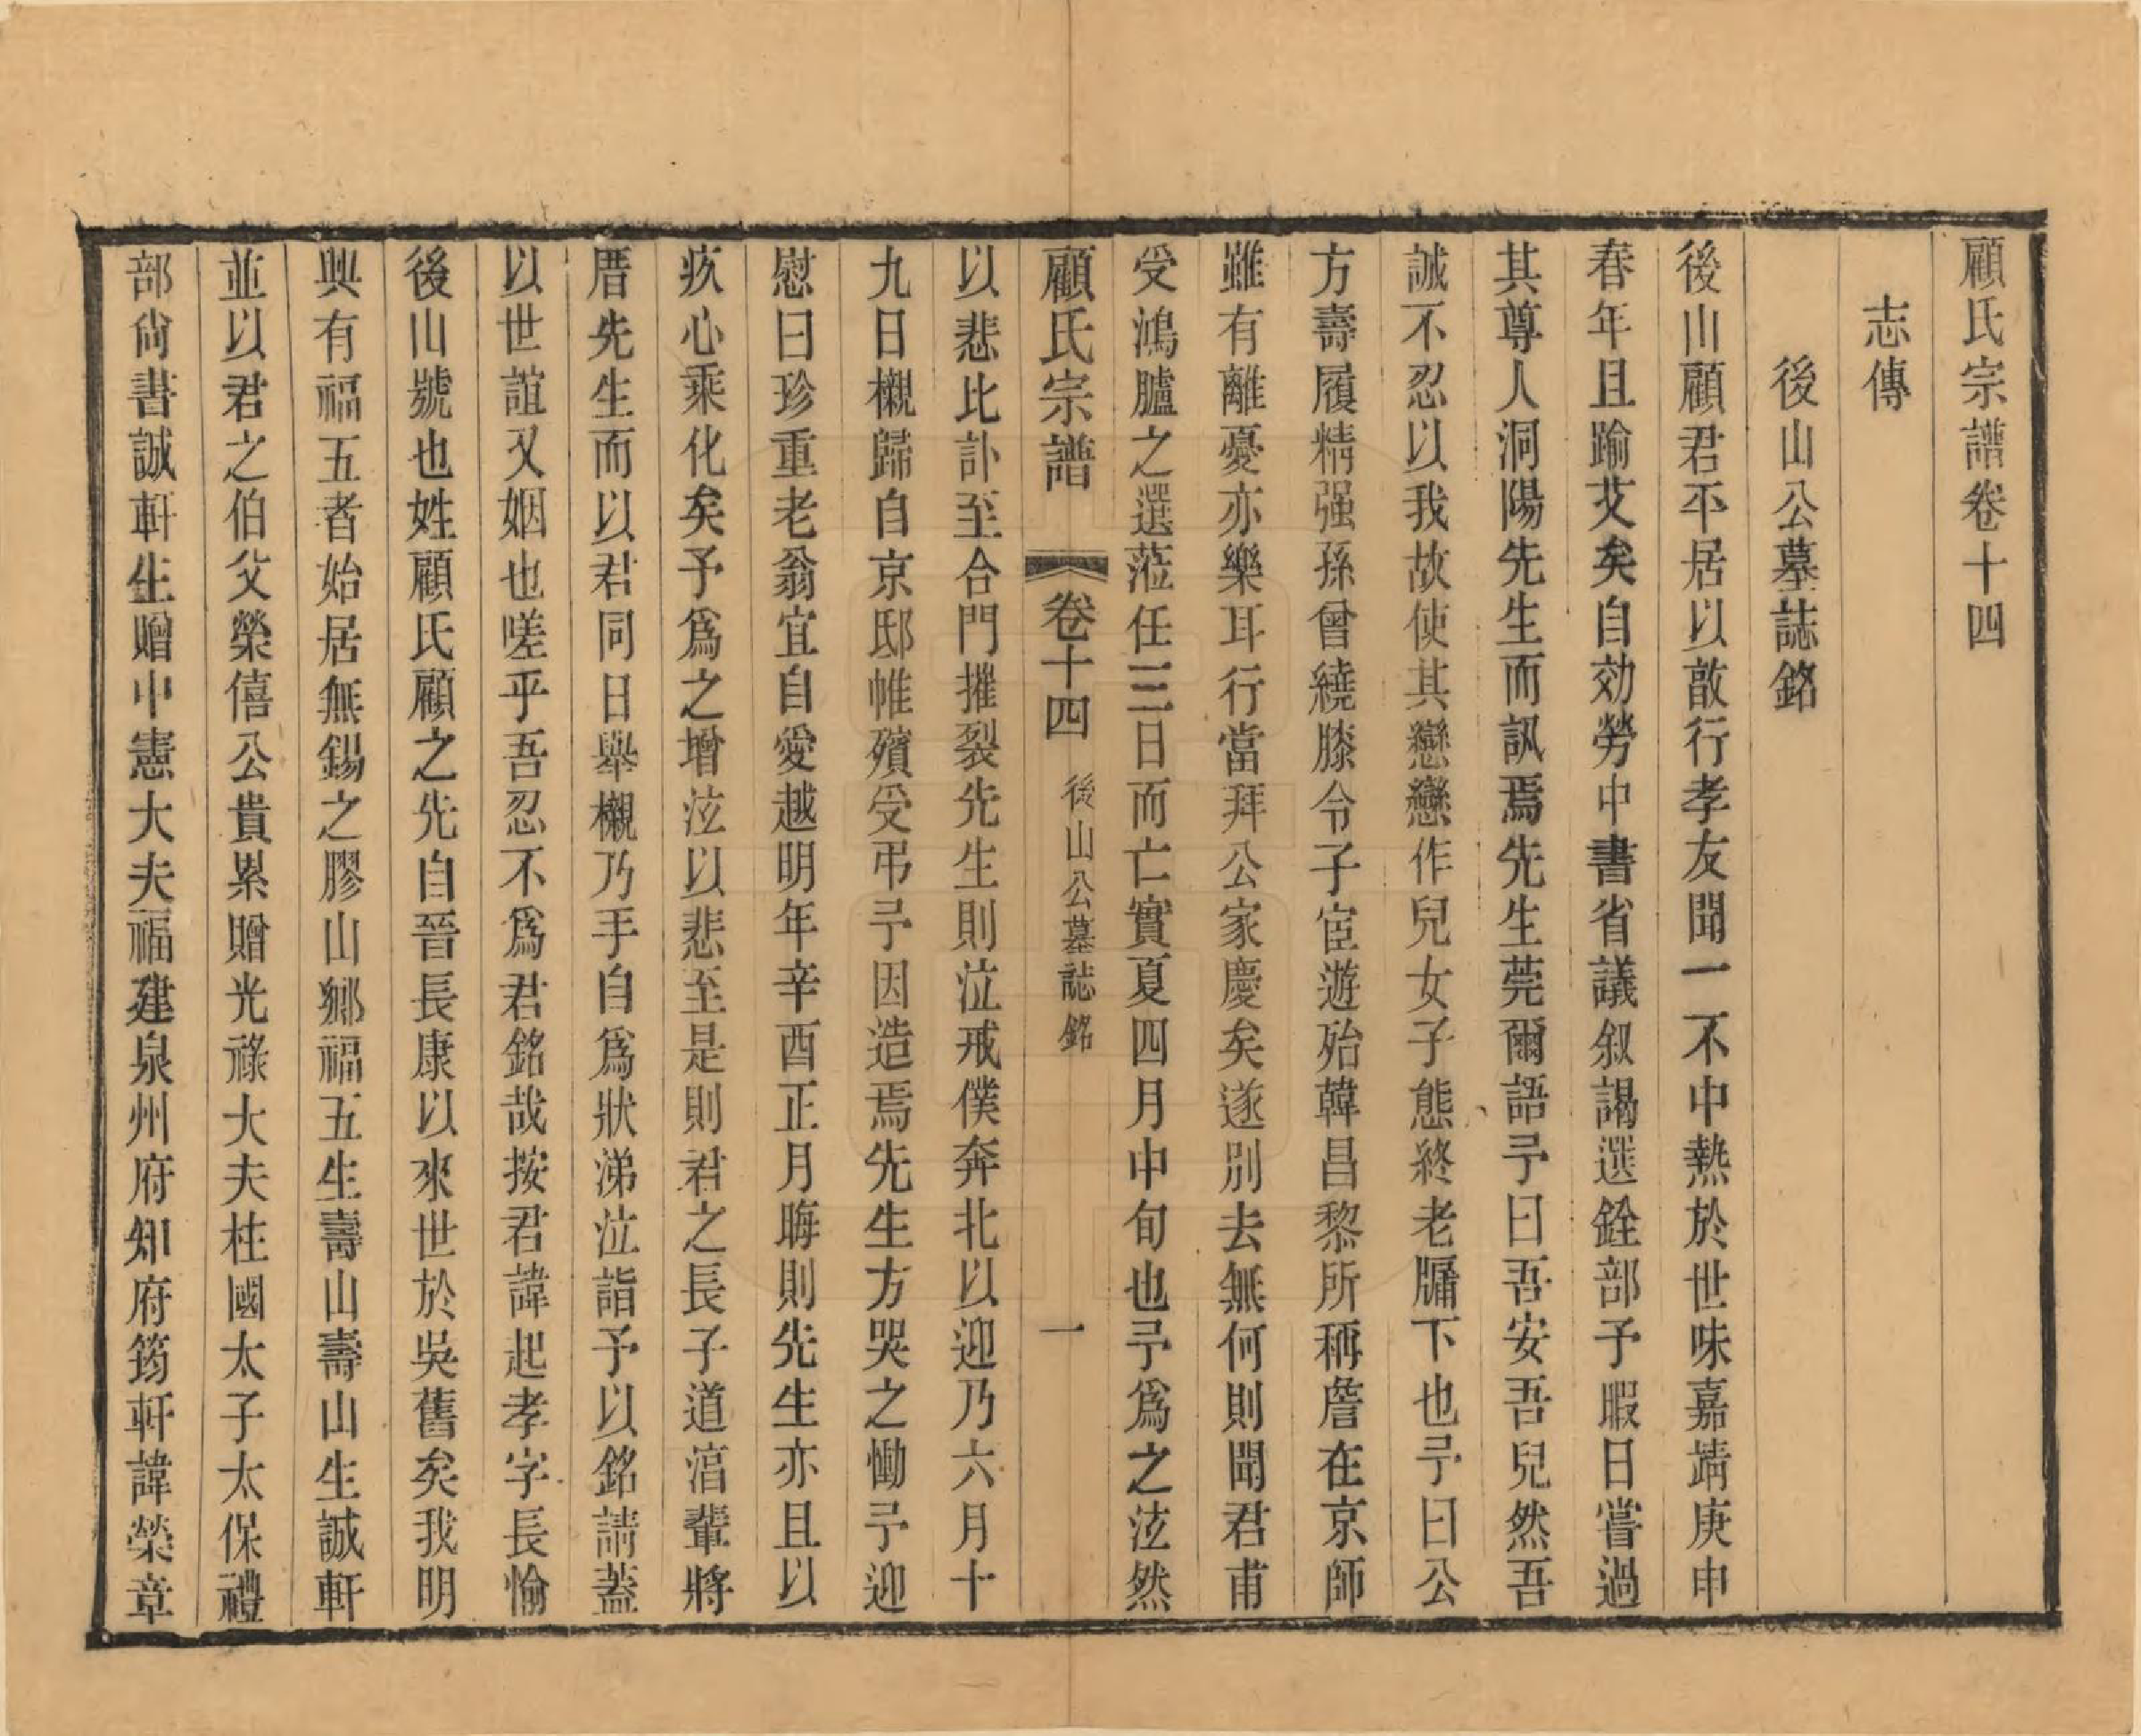 顧氏宗譜卷十四
志傳
後山公墓誌銘
後山顧君平居以敵行孝友聞一不中熱於世味嘉靖庚申
春年且踰艾矣自効勞中書省議叙謁選銓部予暇日嘗過
其尊人洞陽先生而訊焉先生莞爾語予曰吾安吾兒然吾
誠不忍以我故使其戀戀作兒女子態終老牖下也予曰公
方壽履精强孫曾繞膝令子宦遊殆韓昌黎所稱詹在京師
雖有離憂亦樂耳行當拜公家慶矣遂別去無何則聞君甫
受鴻臚之選蒞任三日而亡實夏四月中旬也予爲之泫然
顧氏宗譜 卷十四 後山公墓誌銘 一
以悲比訃至合門摧裂先生則泣戒僕奔北以迎乃六月十
九日櫬歸自京邸帷殯受弔予因造焉先生方哭之慟予迎
慰曰珍重老翁宜自愛越明年辛酉正月晦則先生亦且以
疚心乘化矣予爲之增泫以悲至是則君之長子道涽輩將
厝先生而以君同日舉櫬乃手自爲狀涕泣詣予以銘請蓋
以世誼又姻也嗟乎吾忍不爲君銘哉按君諱起孝字長愉
後山號也姓顧氏顧之先自晉長康以來世於吳舊矣我明
興有福五者始居無錫之膠山鄉福五生壽山壽山生誠軒
並以君之伯父榮僖公貴累贈光祿大夫柱國太子太保禮
部尙書誠軒生贈中憲大夫福建泉州府知府筠軒諱榮章